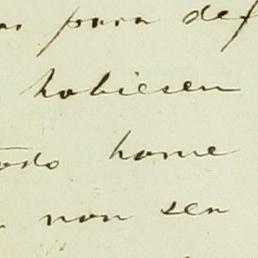 para def
habiesen
todo home
non sen